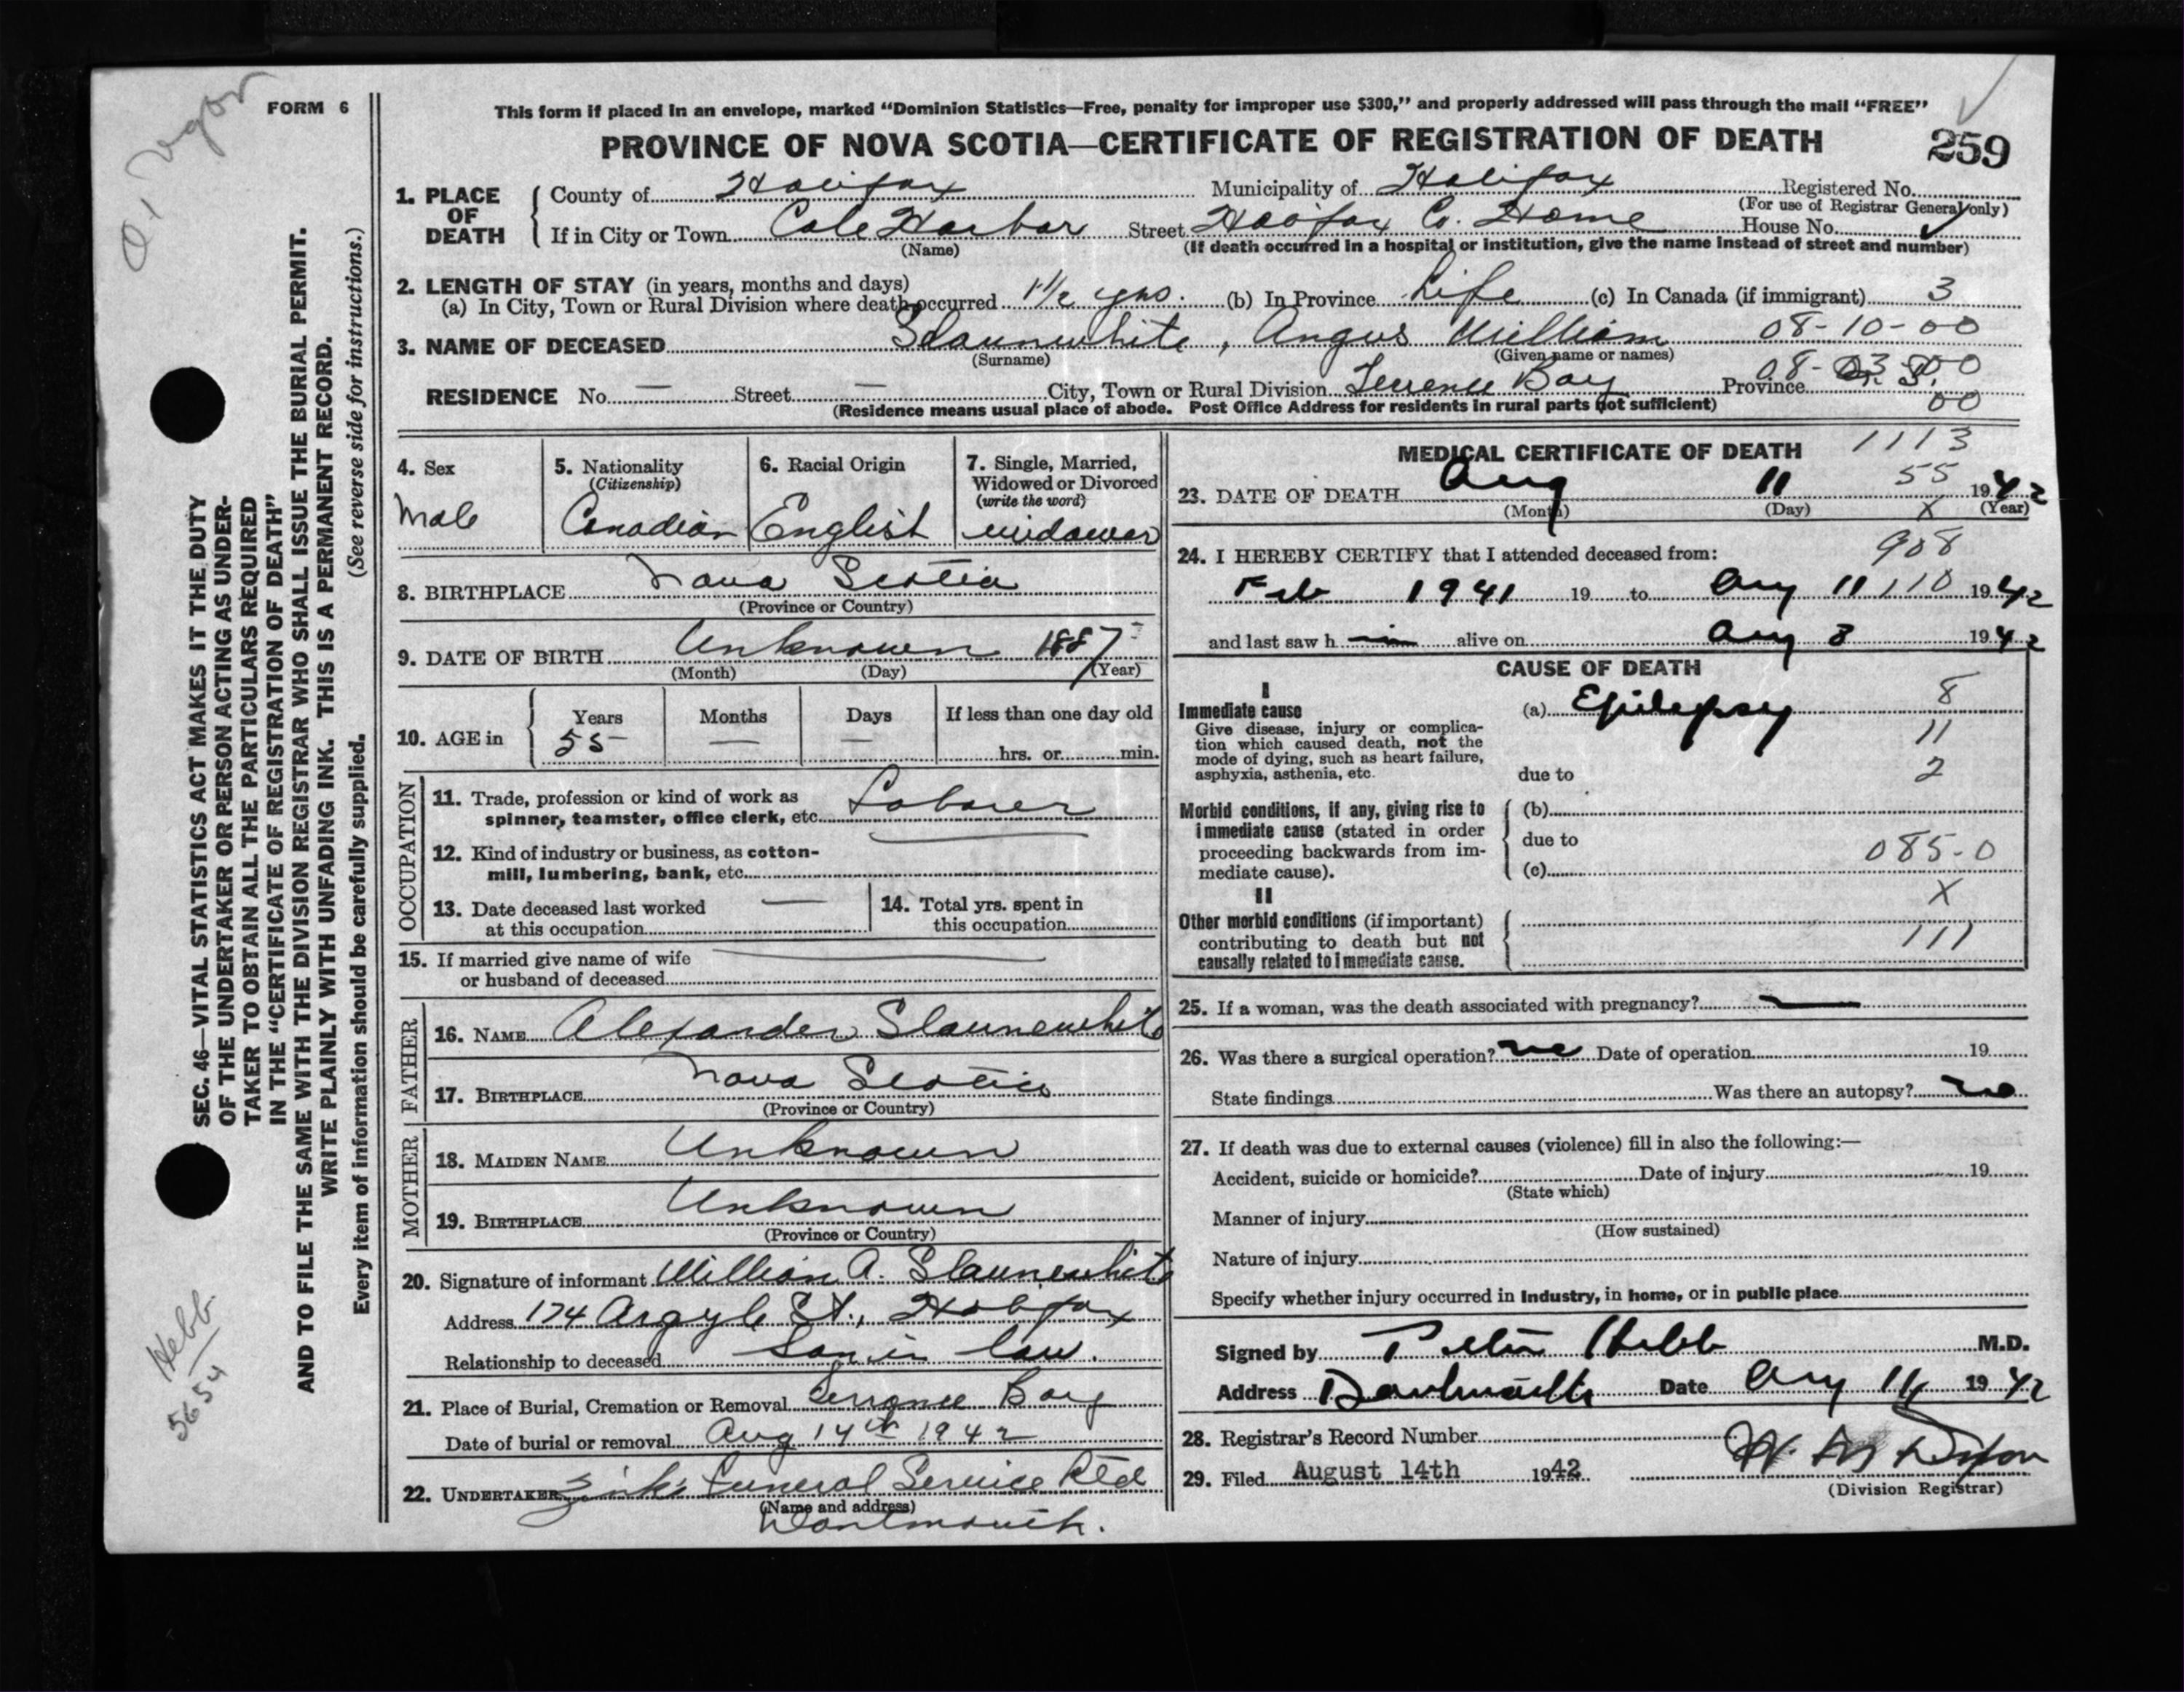 FORM 6
This form if placed in an envelope, marked “Dominion Statistics—Free, penalty for improper use $300,” and properly addressed will pass through the mail “FREE”
PROVINCE OF NOVA SCOTIA—CERTIFICATE OF REGISTRATION OF DEATH
259
1. PLACE OF DEATH
County of Halifax Municipality of Halifax Registered No.
(For use of Registrar General only)
If in City or Town Cole Harbor Street Halifax Co. Home House No.
(Name) (If death occurred in a hospital or institution, give the name instead of street and number)
2. LENGTH OF STAY (in years, months and days)
(a) In City, Town or Rural Division where death occurred 1 1/2 yrs. (b) In Province Life (c) In Canada (if immigrant) 3
3. NAME OF DECEASED Slaunwhite, Angus William 08-10-00
(Surname) (Given name or names)
08-03-00
RESIDENCE No. — Street — City, Town or Rural Division Terrence Bay Province N. S.
00
(Residence means usual place of abode. Post Office Address for residents in rural parts not sufficient)
4. Sex
Male
5. Nationality
(Citizenship)
Canadian
6. Racial Origin
English
7. Single, Married,
Widowed or Divorced
(write the word)
widower
8. BIRTHPLACE Nova Scotia
(Province or Country)
9. DATE OF BIRTH Unknown 1887
(Month) (Day) (Year)
10. AGE in
Years Months Days If less than one day old
55 — — hrs. or min.
OCCUPATION
11. Trade, profession or kind of work as
spinner, teamster, office clerk, etc. Laborer
12. Kind of industry or business, as cotton-
mill, lumbering, bank, etc.
13. Date deceased last worked —
at this occupation
14. Total yrs. spent in
this occupation
15. If married give name of wife
or husband of deceased
FATHER
16. NAME Alexander Slaunewhite
17. BIRTHPLACE Nova Scotia
(Province or Country)
MOTHER
18. MAIDEN NAME Unknown
19. BIRTHPLACE Unknown
(Province or Country)
20. Signature of informant William A. Slaunewhite
Address 174 Argyle St., Halifax
Relationship to deceased Son in law.
21. Place of Burial, Cremation or Removal Terrence Bay
Date of burial or removal Aug 14th 1942
22. UNDERTAKER Zink's Funeral Service Ltd
(Name and address)
Dartmouth.
MEDICAL CERTIFICATE OF DEATH
1113
55
23. DATE OF DEATH Aug 11 1942
(Month) (Day) x (Year)
24. I HEREBY CERTIFY that I attended deceased from: 908
Feb 1941 19 to Aug 11 110 1942
and last saw h im alive on Aug 8 1942
CAUSE OF DEATH
I
Immediate cause
(a) Epilepsy 8
Give disease, injury or complica-
tion which caused death, not the
mode of dying, such as heart failure,
asphyxia, asthenia, etc.
11
due to 2
Morbid conditions, if any, giving rise to
immediate cause (stated in order
proceeding backwards from im-
mediate cause).
(b)
due to
085-0
(c)
II
X
Other morbid conditions (if important)
contributing to death but not
causally related to immediate cause.
111
25. If a woman, was the death associated with pregnancy? —
26. Was there a surgical operation? no Date of operation 19
State findings Was there an autopsy? no
27. If death was due to external causes (violence) fill in also the following:—
Accident, suicide or homicide? Date of injury 19
(State which)
Manner of injury
(How sustained)
Nature of injury
Specify whether injury occurred in Industry, in home, or in public place
Signed by Peter Hebb M.D.
Address Dartmouth Date Aug 14 1942
28. Registrar's Record Number
29. Filed August 14th 1942
(Division Registrar)
SEC. 46—VITAL STATISTICS ACT MAKES IT THE DUTY
OF THE UNDERTAKER OR PERSON ACTING AS UNDER-
TAKER TO OBTAIN ALL THE PARTICULARS REQUIRED
IN THE “CERTIFICATE OF REGISTRATION OF DEATH”
AND TO FILE THE SAME WITH THE DIVISION REGISTRAR WHO SHALL ISSUE THE BURIAL PERMIT.
WRITE PLAINLY WITH UNFADING INK. THIS IS A PERMANENT RECORD.
Every item of information should be carefully supplied. (See reverse side for instructions.)
Hebb
5654